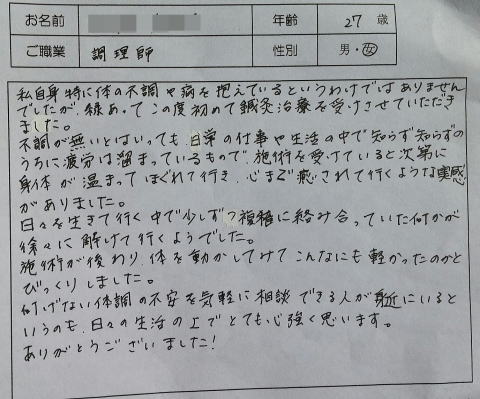 お名前 年齢 27 歳
ご職業 調理師 性別 男・女
私自身特に体の不調や病を抱えているというわけではありません
でしたが、縁あってこの度初めて鍼灸治療を受けさせていただき
ました。
不調が無いとはいっても、日常の仕事や生活の中で知らず知らずの
うちに疲労は溜まっているもので、施術を受けていると次第に
身体が温まってほぐれて行き、心まで癒されて行くような実感
がありました。
日々を生きて行く中で少しずつ複雑に絡み合っていた何かが
徐々に解けて行くようでした。
施術が終わり、体を動かしてみてこんなにも軽かったのかと
びっくりしました。
何げない体調の不安を気軽に相談できる人が身近にいると
いうのも、日々の生活の上でとても心強く思います。
ありがとうございました!